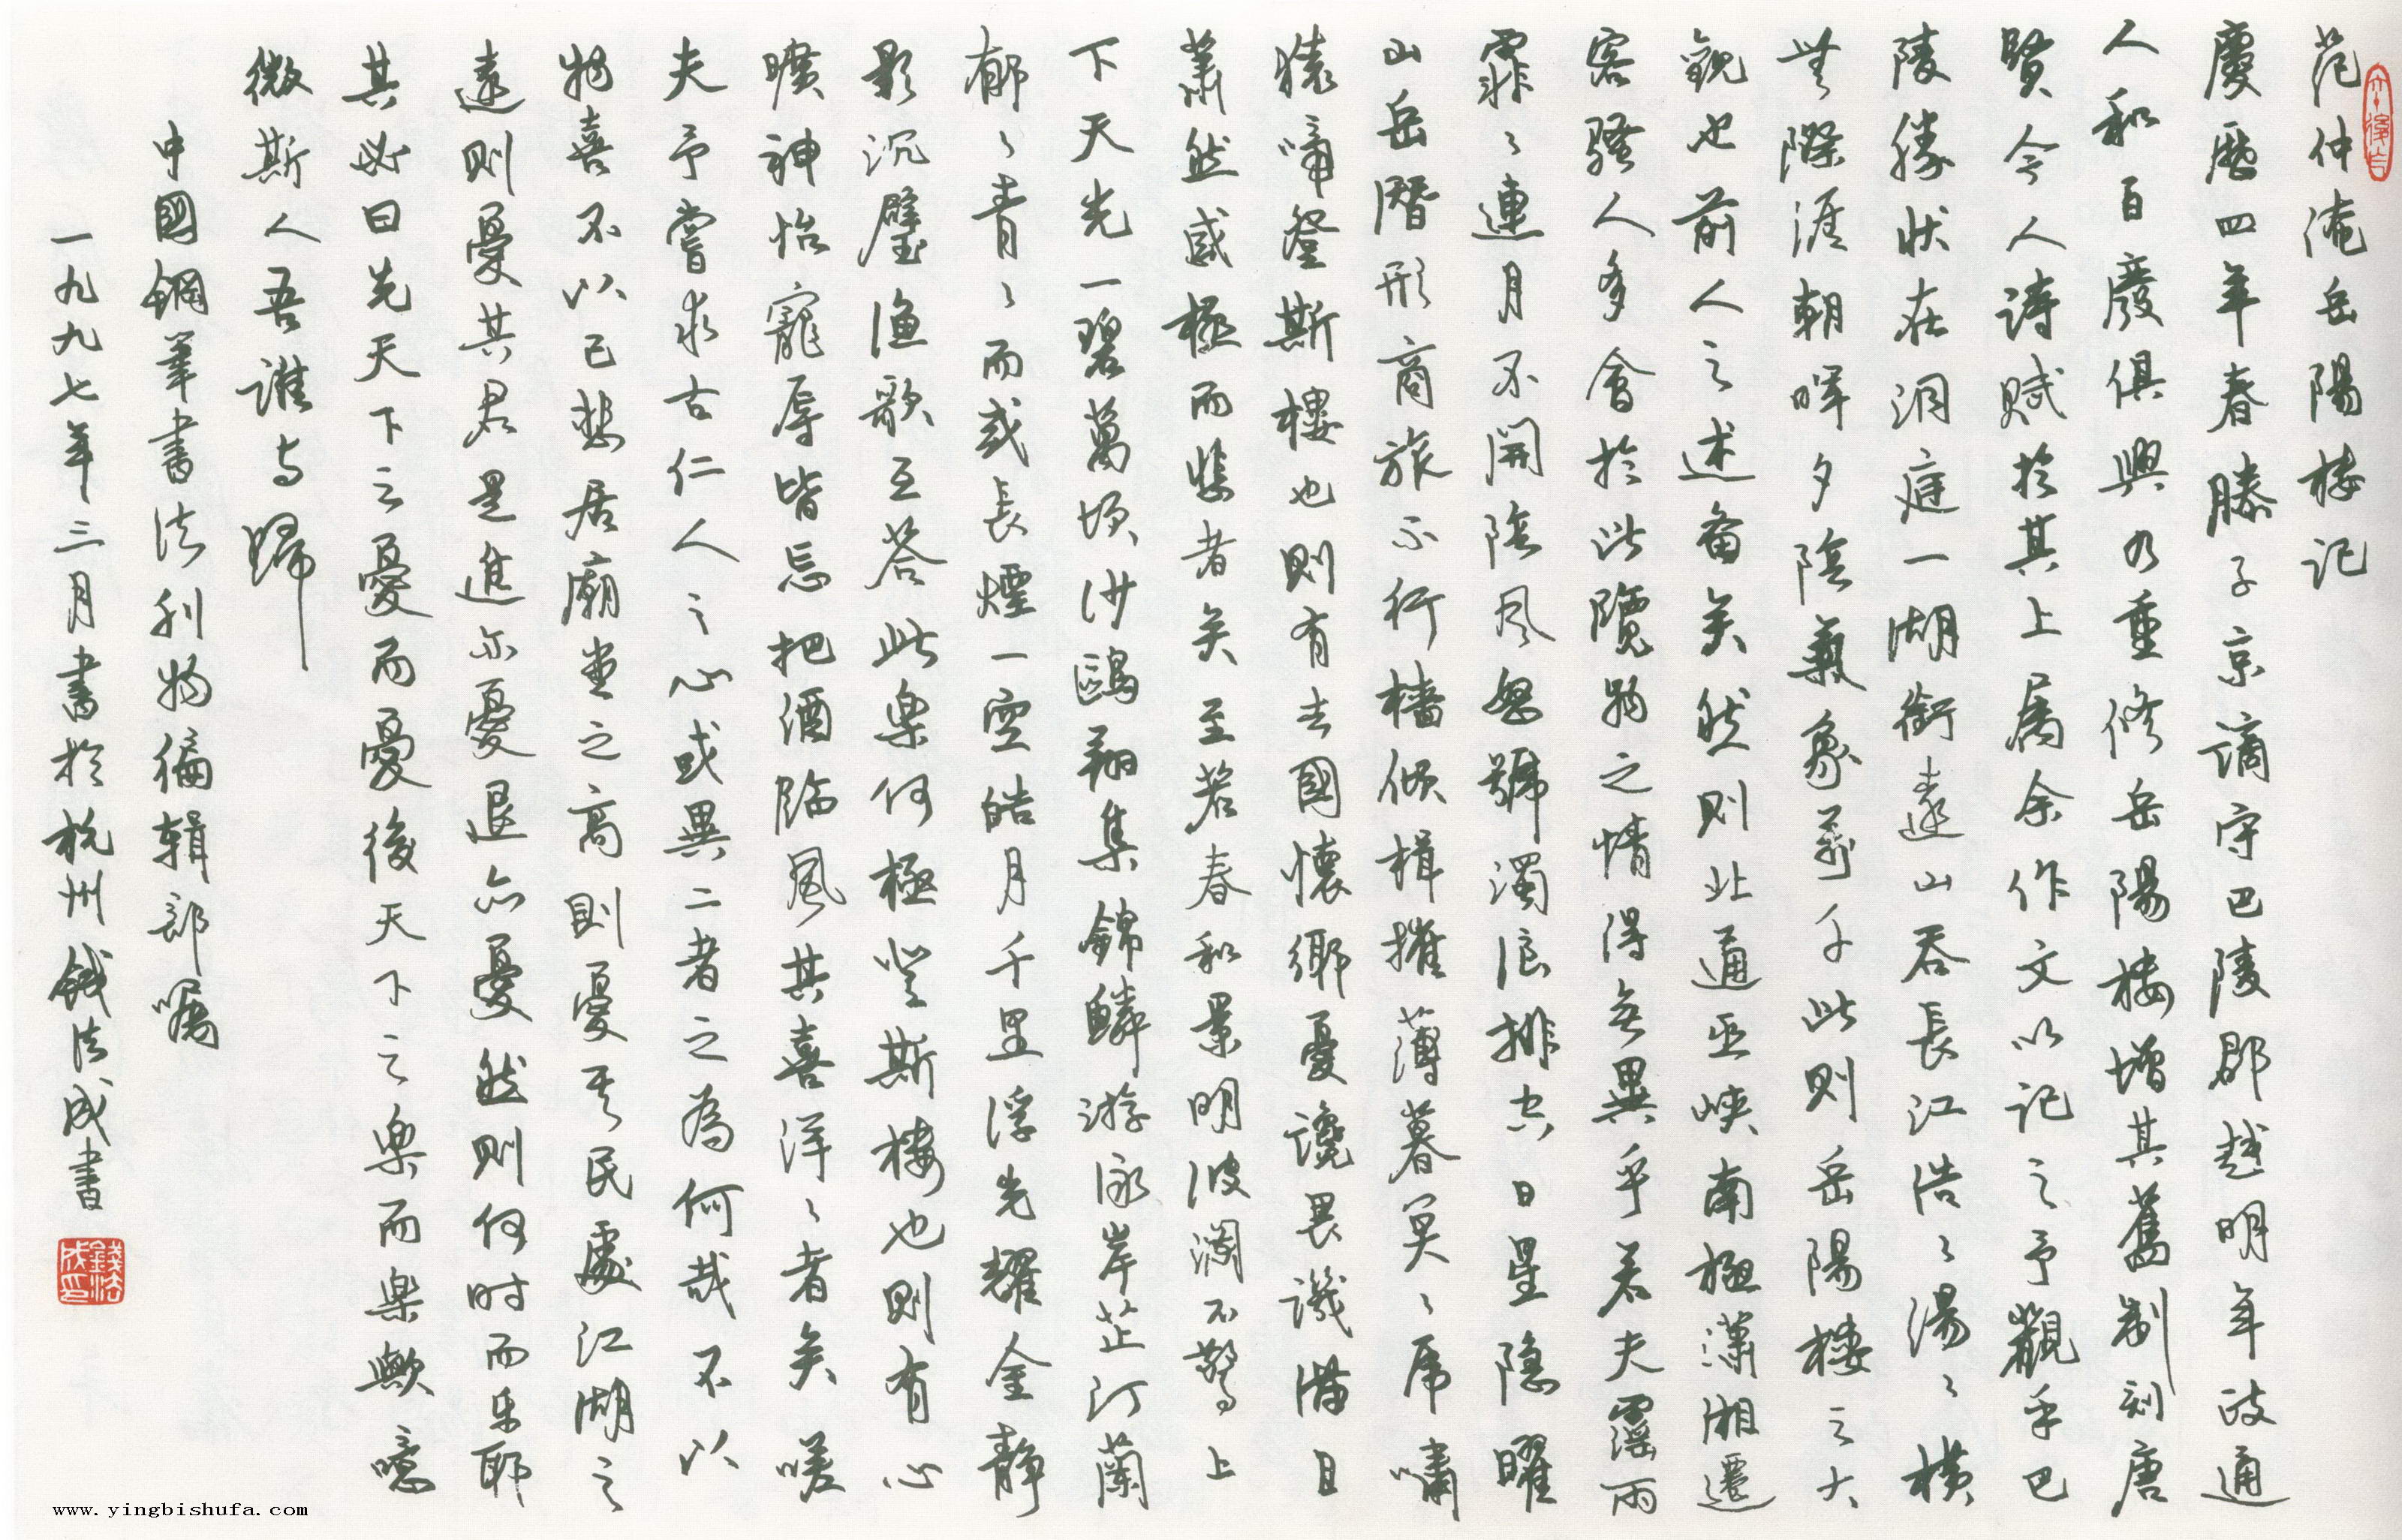 范仲淹岳陽樓記
慶曆四年春滕子京謫守巴陵郡越明年政通
人和百廢俱興乃重修岳陽樓增其舊制刻唐
賢今人詩賦於其上屬余作文以記之予觀乎巴
陵勝狀在洞庭一湖銜遠山吞長江浩〻湯〻橫
無際涯朝暉夕陰氣象萬千此則岳陽樓之大
觀也前人之述備矣然則北通巫峽南極瀟湘遷
客騷人多會於此覽物之情得無異乎若夫霪雨
霏〻連月不開陰風怒號濁浪排空日星隱曜
山岳潛形商旅不行檣傾楫摧薄暮冥〻虎嘯
猿啼登斯樓也則有去國懷鄉憂讒畏譏滿目
蕭然感極而悲者矣至若春和景明波瀾不驚上
下天光一碧萬頃沙鷗翔集錦鱗游泳岸芷汀蘭
郁〻青〻而或長煙一空皓月千里浮光耀金靜
影沉璧漁歌互答此樂何極登斯樓也則有心
曠神怡寵辱皆忘把酒臨風其喜洋〻者矣嗟
夫予嘗求古仁人之心或異二者之為何哉不以
物喜不以己悲居廟堂之高則憂其民處江湖之
遠則憂其君是進亦憂退亦憂然則何时而乐耶
其必曰先天下之憂而憂後天下之樂而樂歟噫
微斯人吾誰与歸
中國鋼筆書法刊物编辑部囑
一九九七年三月書於杭州钱法成書
錢法成印
www.yingbishufa.com